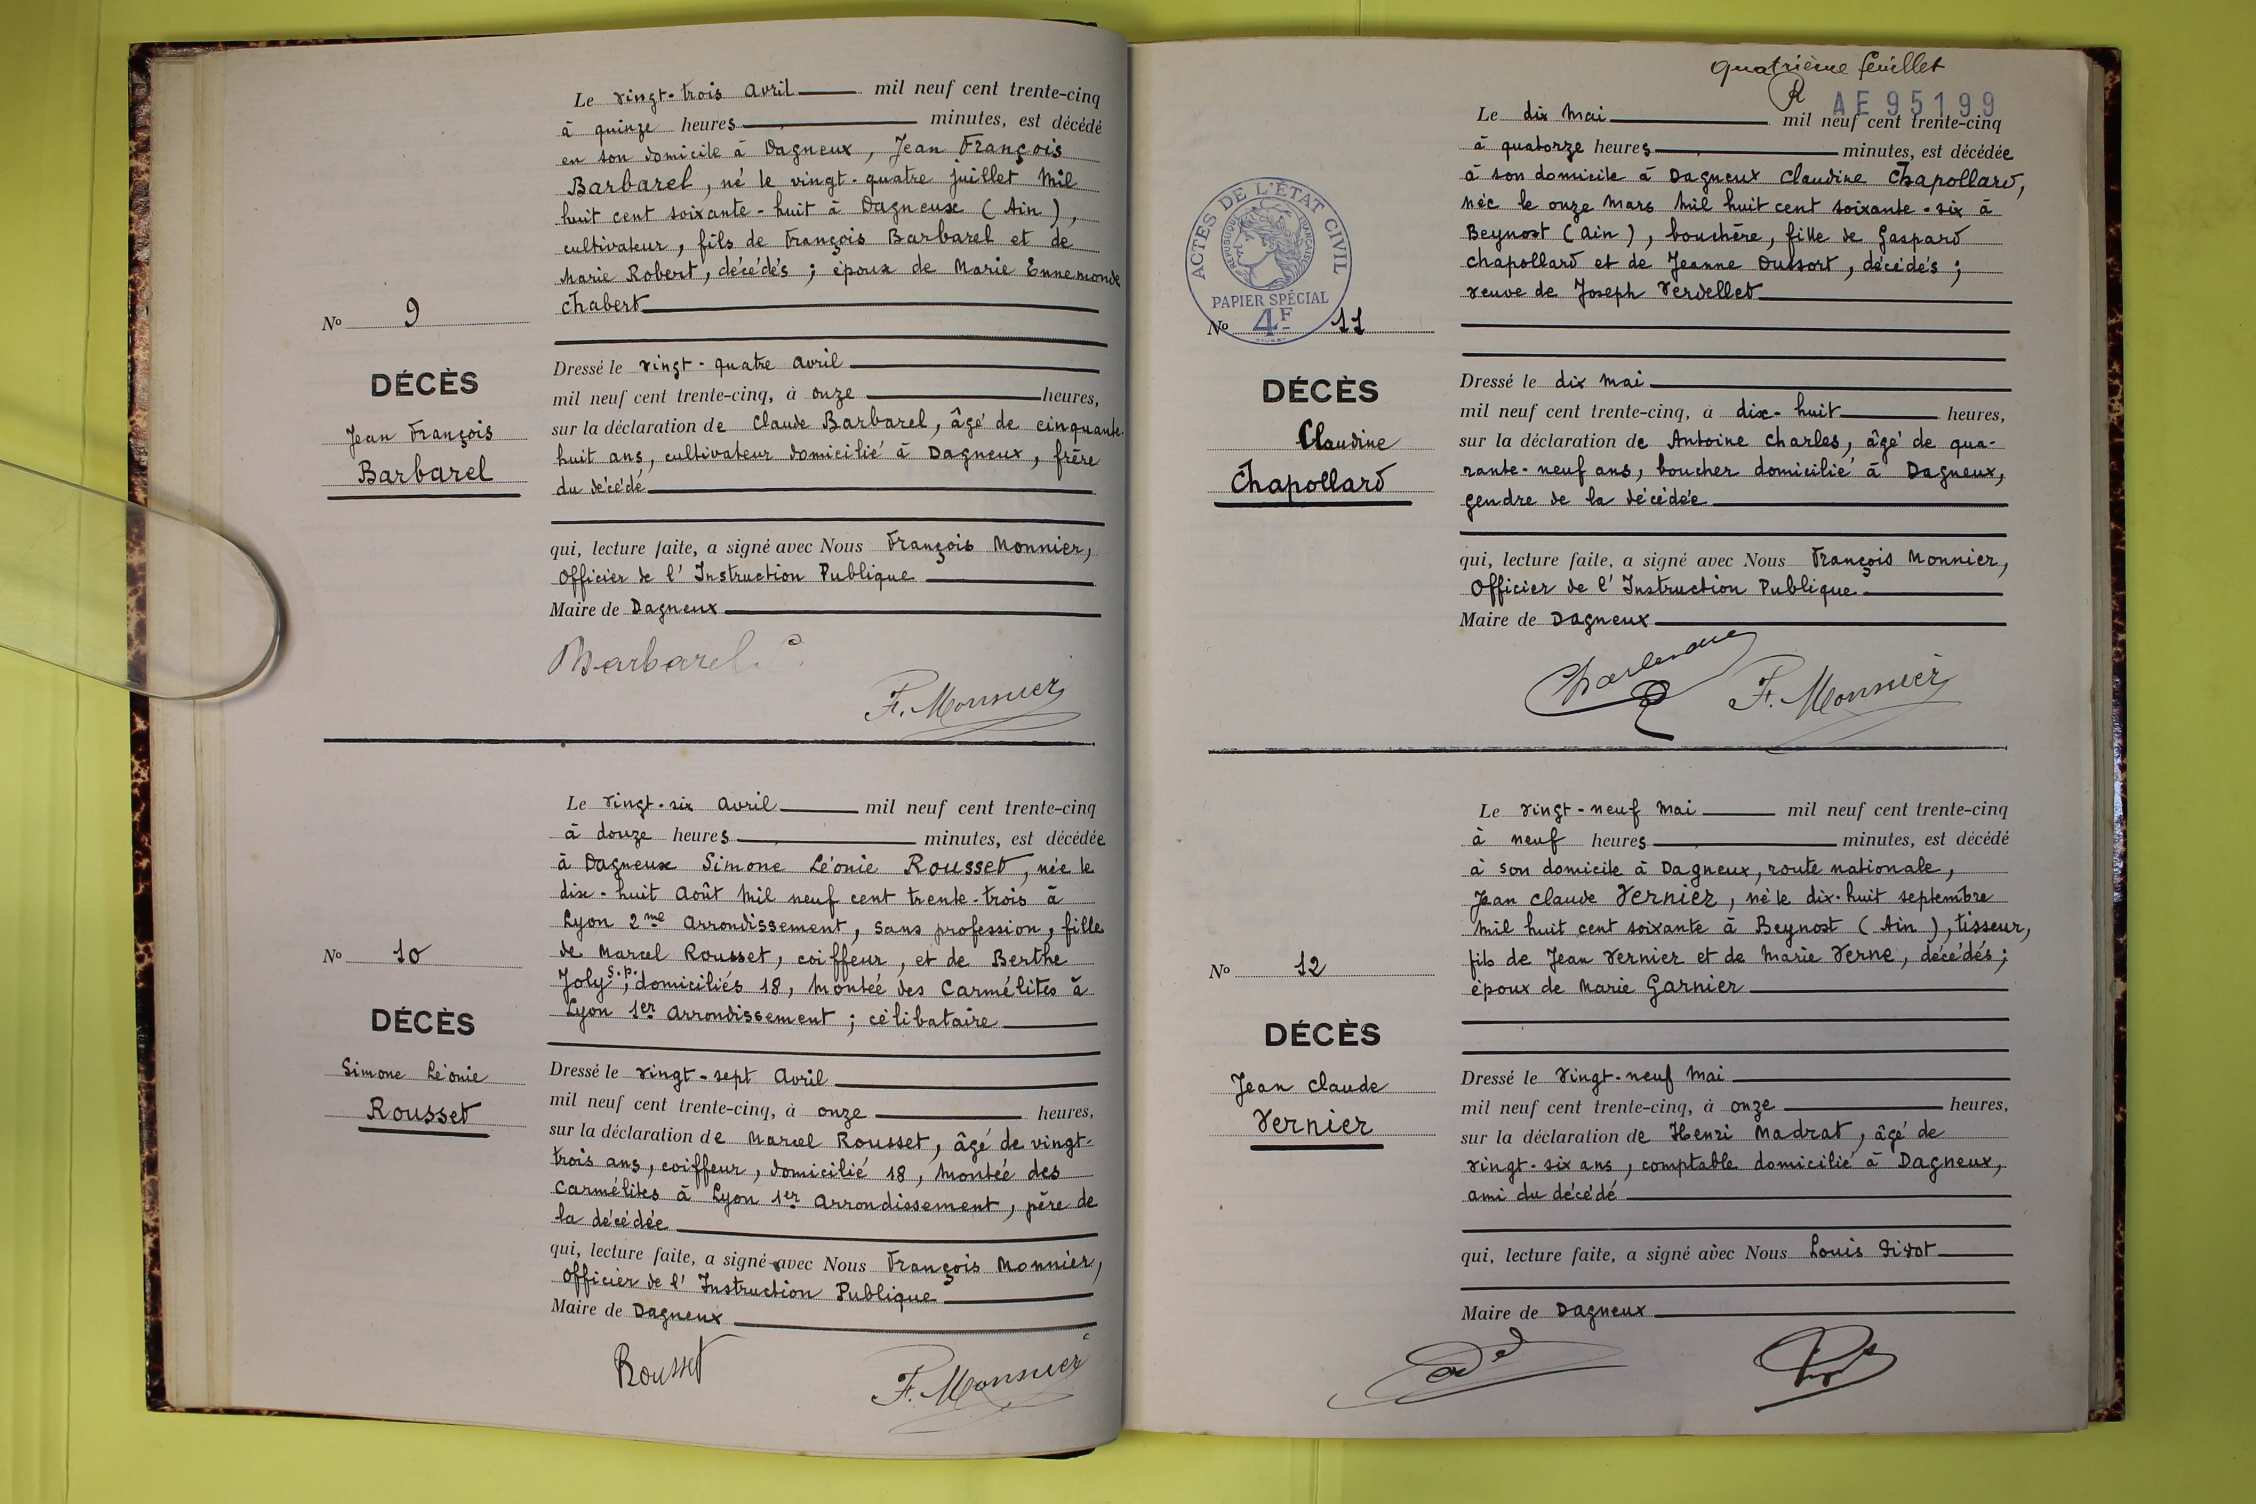 Le vingt-trois avril mil neuf cent trente-cinq
à quinze heures minutes, est décédé
en son domicile à Dagneux, Jean François
Barbarel, né le vingt-quatre juillet mil
huit cent soixante-huit à Dagneux (Ain),
cultivateur, fils de François Barbarel et de
Marie Robert, décédés; époux de Marie Ennemonde
Chabert
No 9
DÉCÈS
Jean François
Barbarel
Dressé le vingt-quatre avril
mil neuf cent trente-cinq, à onze heures,
sur la déclaration de Claude Barbarel, âgé de cinquante-
huit ans, cultivateur domicilié à Dagneux, frère
du décédé
qui, lecture faite, a signé avec Nous François Monnier,
Officier de l'Instruction Publique
Maire de Dagneux
Barbarel C.
F. Monnier
Le vingt-six avril mil neuf cent trente-cinq
à douze heures minutes, est décédée
à Dagneux Simone Léonie Rousset, née le
dix-huit août mil neuf cent trente-trois à
Lyon 2me arrondissement, sans profession, fille
de Marcel Rousset, coiffeur, et de Berthe
Joly s.p.; domiciliés 18, Montée des Carmélites à
Lyon 1er arrondissement; célibataire
No 10
DÉCÈS
Simone Léonie
Rousset
Dressé le vingt-sept avril
mil neuf cent trente-cinq, à onze heures,
sur la déclaration de Marcel Rousset, âgé de vingt-
trois ans, coiffeur, domicilié 18, Montée des
Carmélites à Lyon 1er arrondissement, père de
la décédée
qui, lecture faite, a signé avec Nous François Monnier,
Officier de l'Instruction Publique
Maire de Dagneux
Rousset
F. Monnier
Quatrième feuillet
AE95199
Le dix mai mil neuf cent trente-cinq
à quatorze heures minutes, est décédée
à son domicile à Dagneux Claudine Chapollard,
née le onze mars mil huit cent soixante-six à
Beynost (Ain), bouchère, fille de Gaspard
Chapollard et de Jeanne Dussort, décédés;
veuve de Joseph Verdellet
ACTES DE L'ÉTAT CIVIL
RÉPUBLIQUE FRANÇAISE
PAPIER SPÉCIAL
4F
No 11
DÉCÈS
Claudine
Chapollard
Dressé le dix mai
mil neuf cent trente-cinq, à dix-huit heures,
sur la déclaration de Antoine Charles, âgé de qua-
rante-neuf ans, boucher domicilié à Dagneux,
gendre de la décédée
qui, lecture faite, a signé avec Nous François Monnier,
Officier de l'Instruction Publique
Maire de Dagneux
F. Monnier
Le vingt-neuf mai mil neuf cent trente-cinq
à neuf heures minutes, est décédé
à son domicile à Dagneux, route nationale,
Jean Claude Vernier, né le dix-huit septembre
mil huit cent soixante à Beynost (Ain), tisseur,
fils de Jean Vernier et de Marie Verne, décédés;
époux de Marie Garnier
No 12
DÉCÈS
Jean Claude
Vernier
Dressé le vingt-neuf mai
mil neuf cent trente-cinq, à onze heures,
sur la déclaration de Henri Madrat, âgé de
vingt-six ans, comptable domicilié à Dagneux,
ami du décédé
qui, lecture faite, a signé avec Nous Louis
Maire de Dagneux